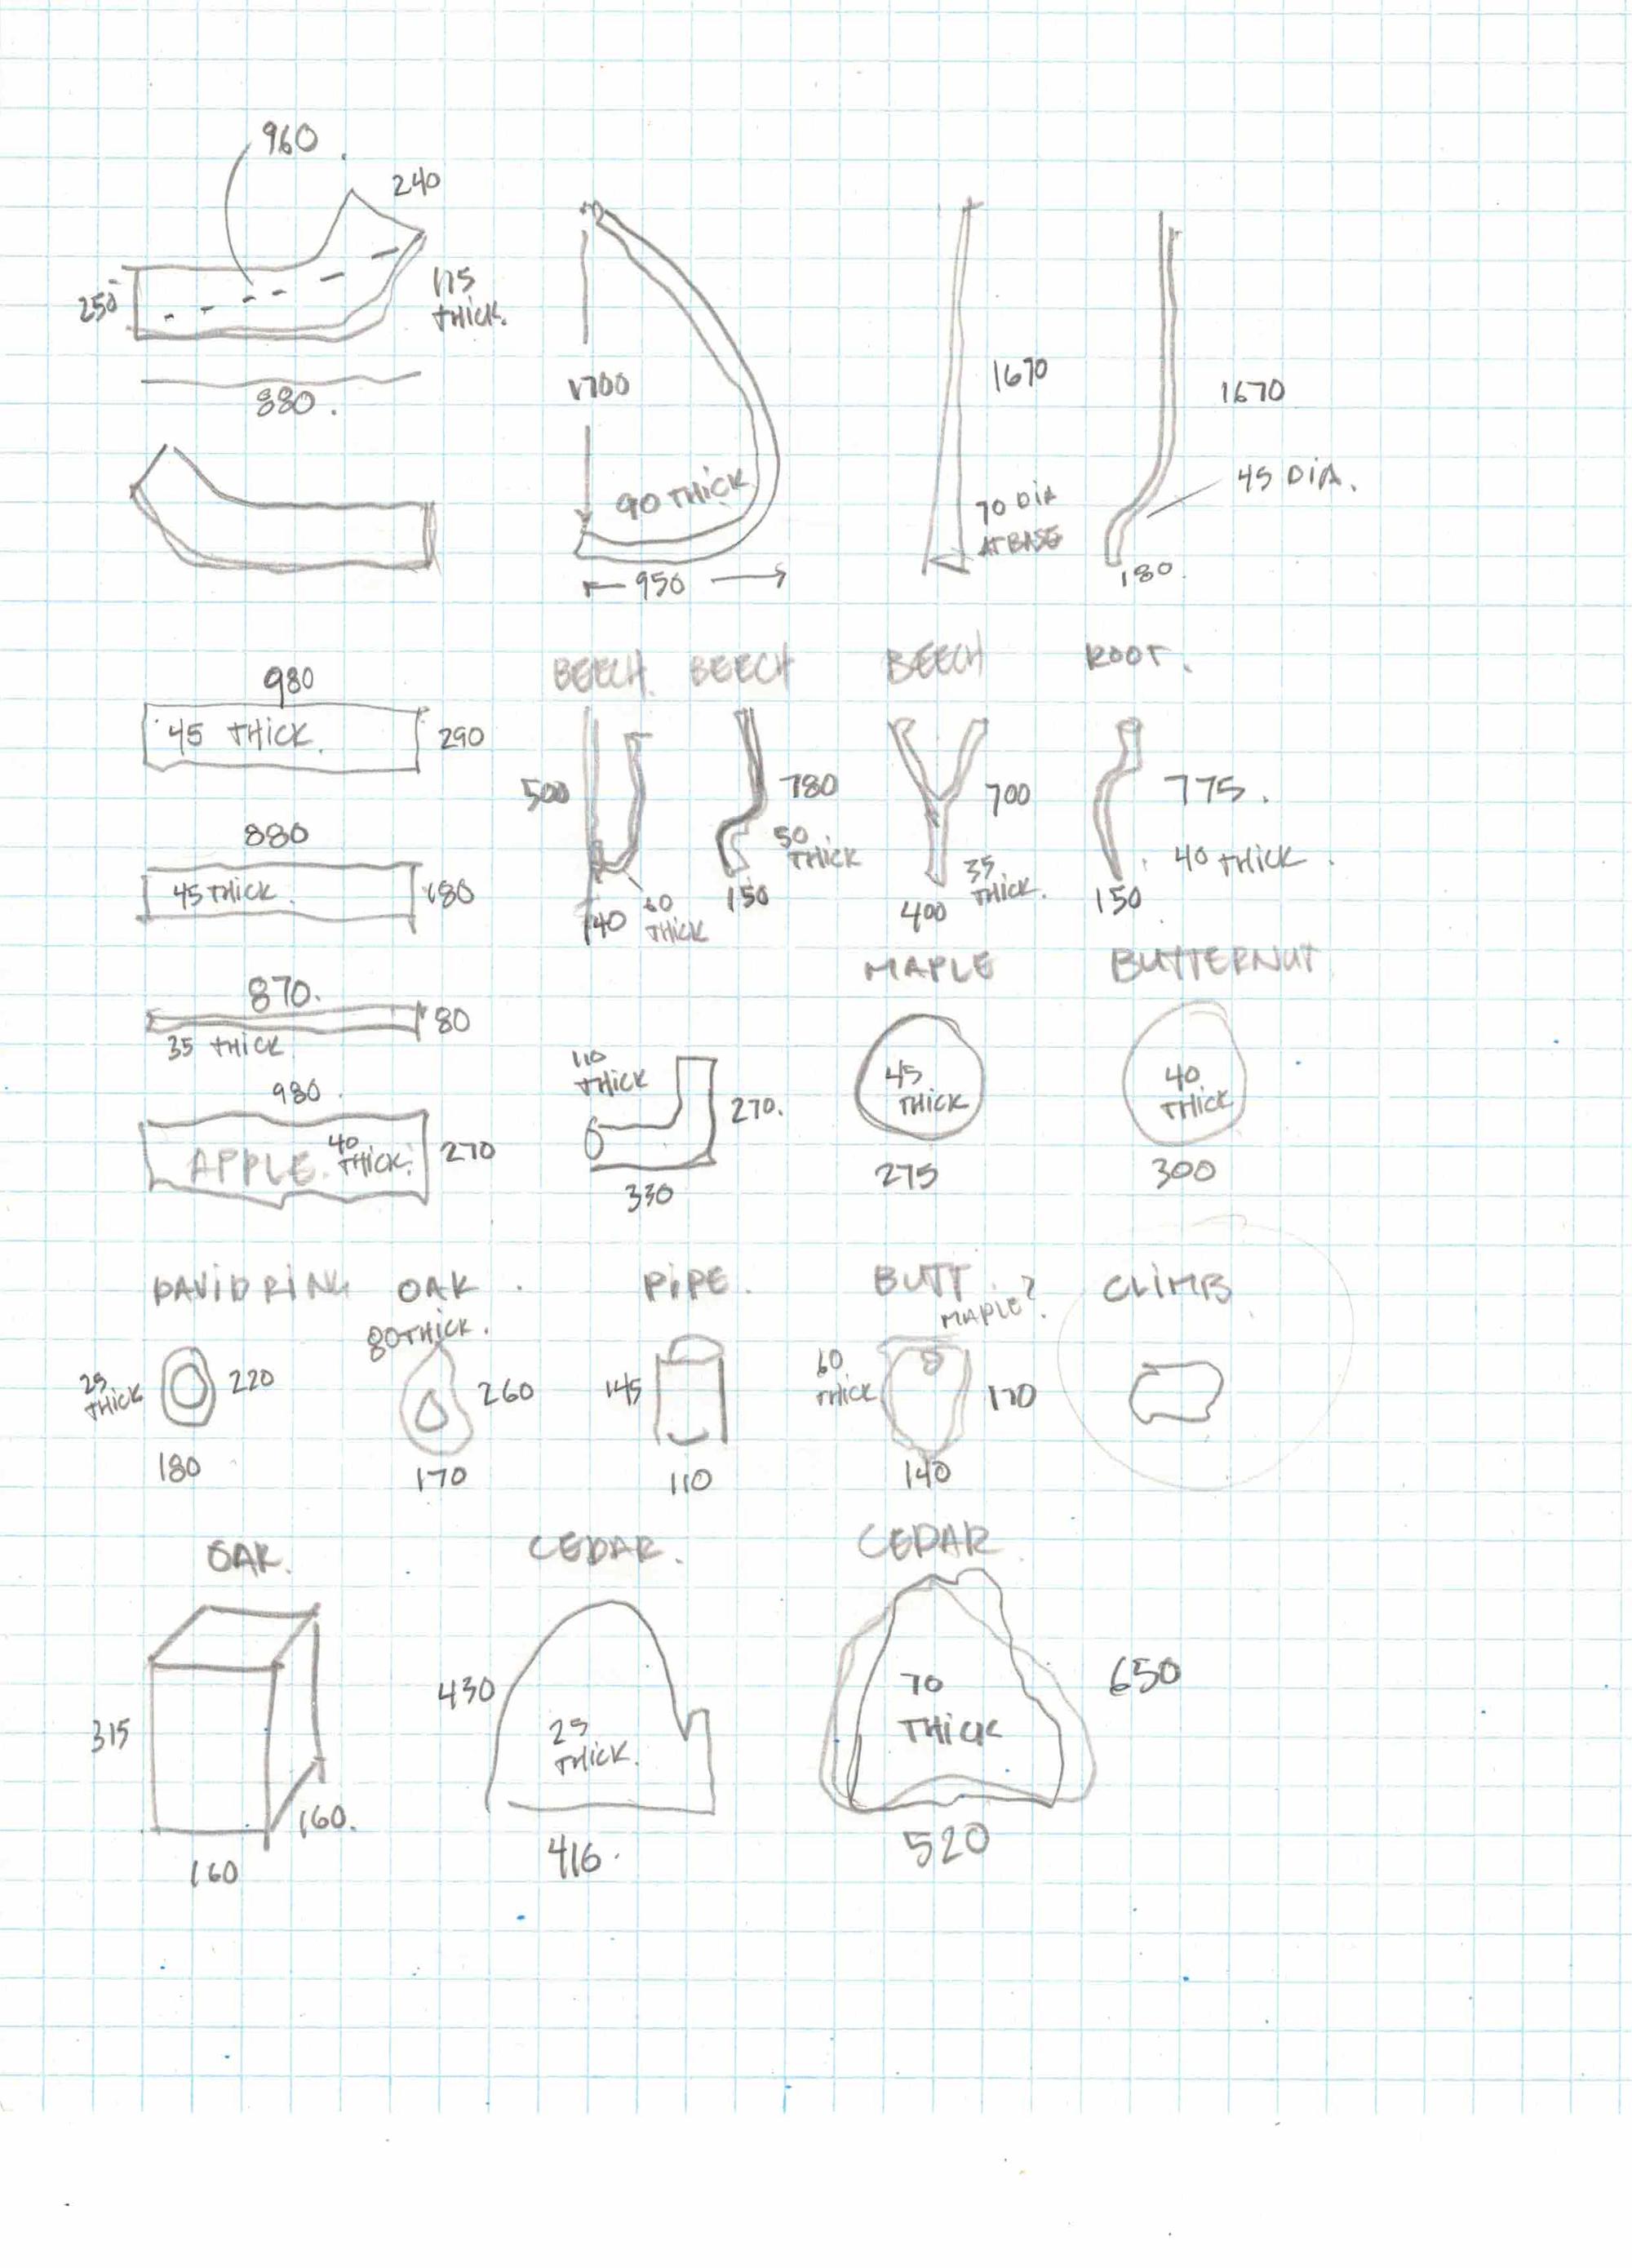 960
240
250
175
THICK.
880.
1700
90 THICK
950
1670
70 DIA
AT BASE
1670
45 DIA.
180.
980
45 THICK.
290
880
45 THICK.
180
870.
80
35 THICK
980.
APPLE.
40
THICK.
270
BEECH.
BEECH
BEECH
ROOT.
500
140
60
THICK
780
50
THICK
150
700
35
THICK.
400
775.
40 THICK.
150
110
THICK
270.
330
MAPLE
45
THICK
275
BUTTERNUT
40
THICK
300
DAVID RING
25
THICK
220
180
OAK.
80 THICK.
260
170
PIPE.
145
110
BUTT.
MAPLE?
60
THICK
170
140
CLIMB.
OAK.
315
160.
160
CEDAR.
430
25
THICK.
416.
CEDAR
70
THICK
650
520